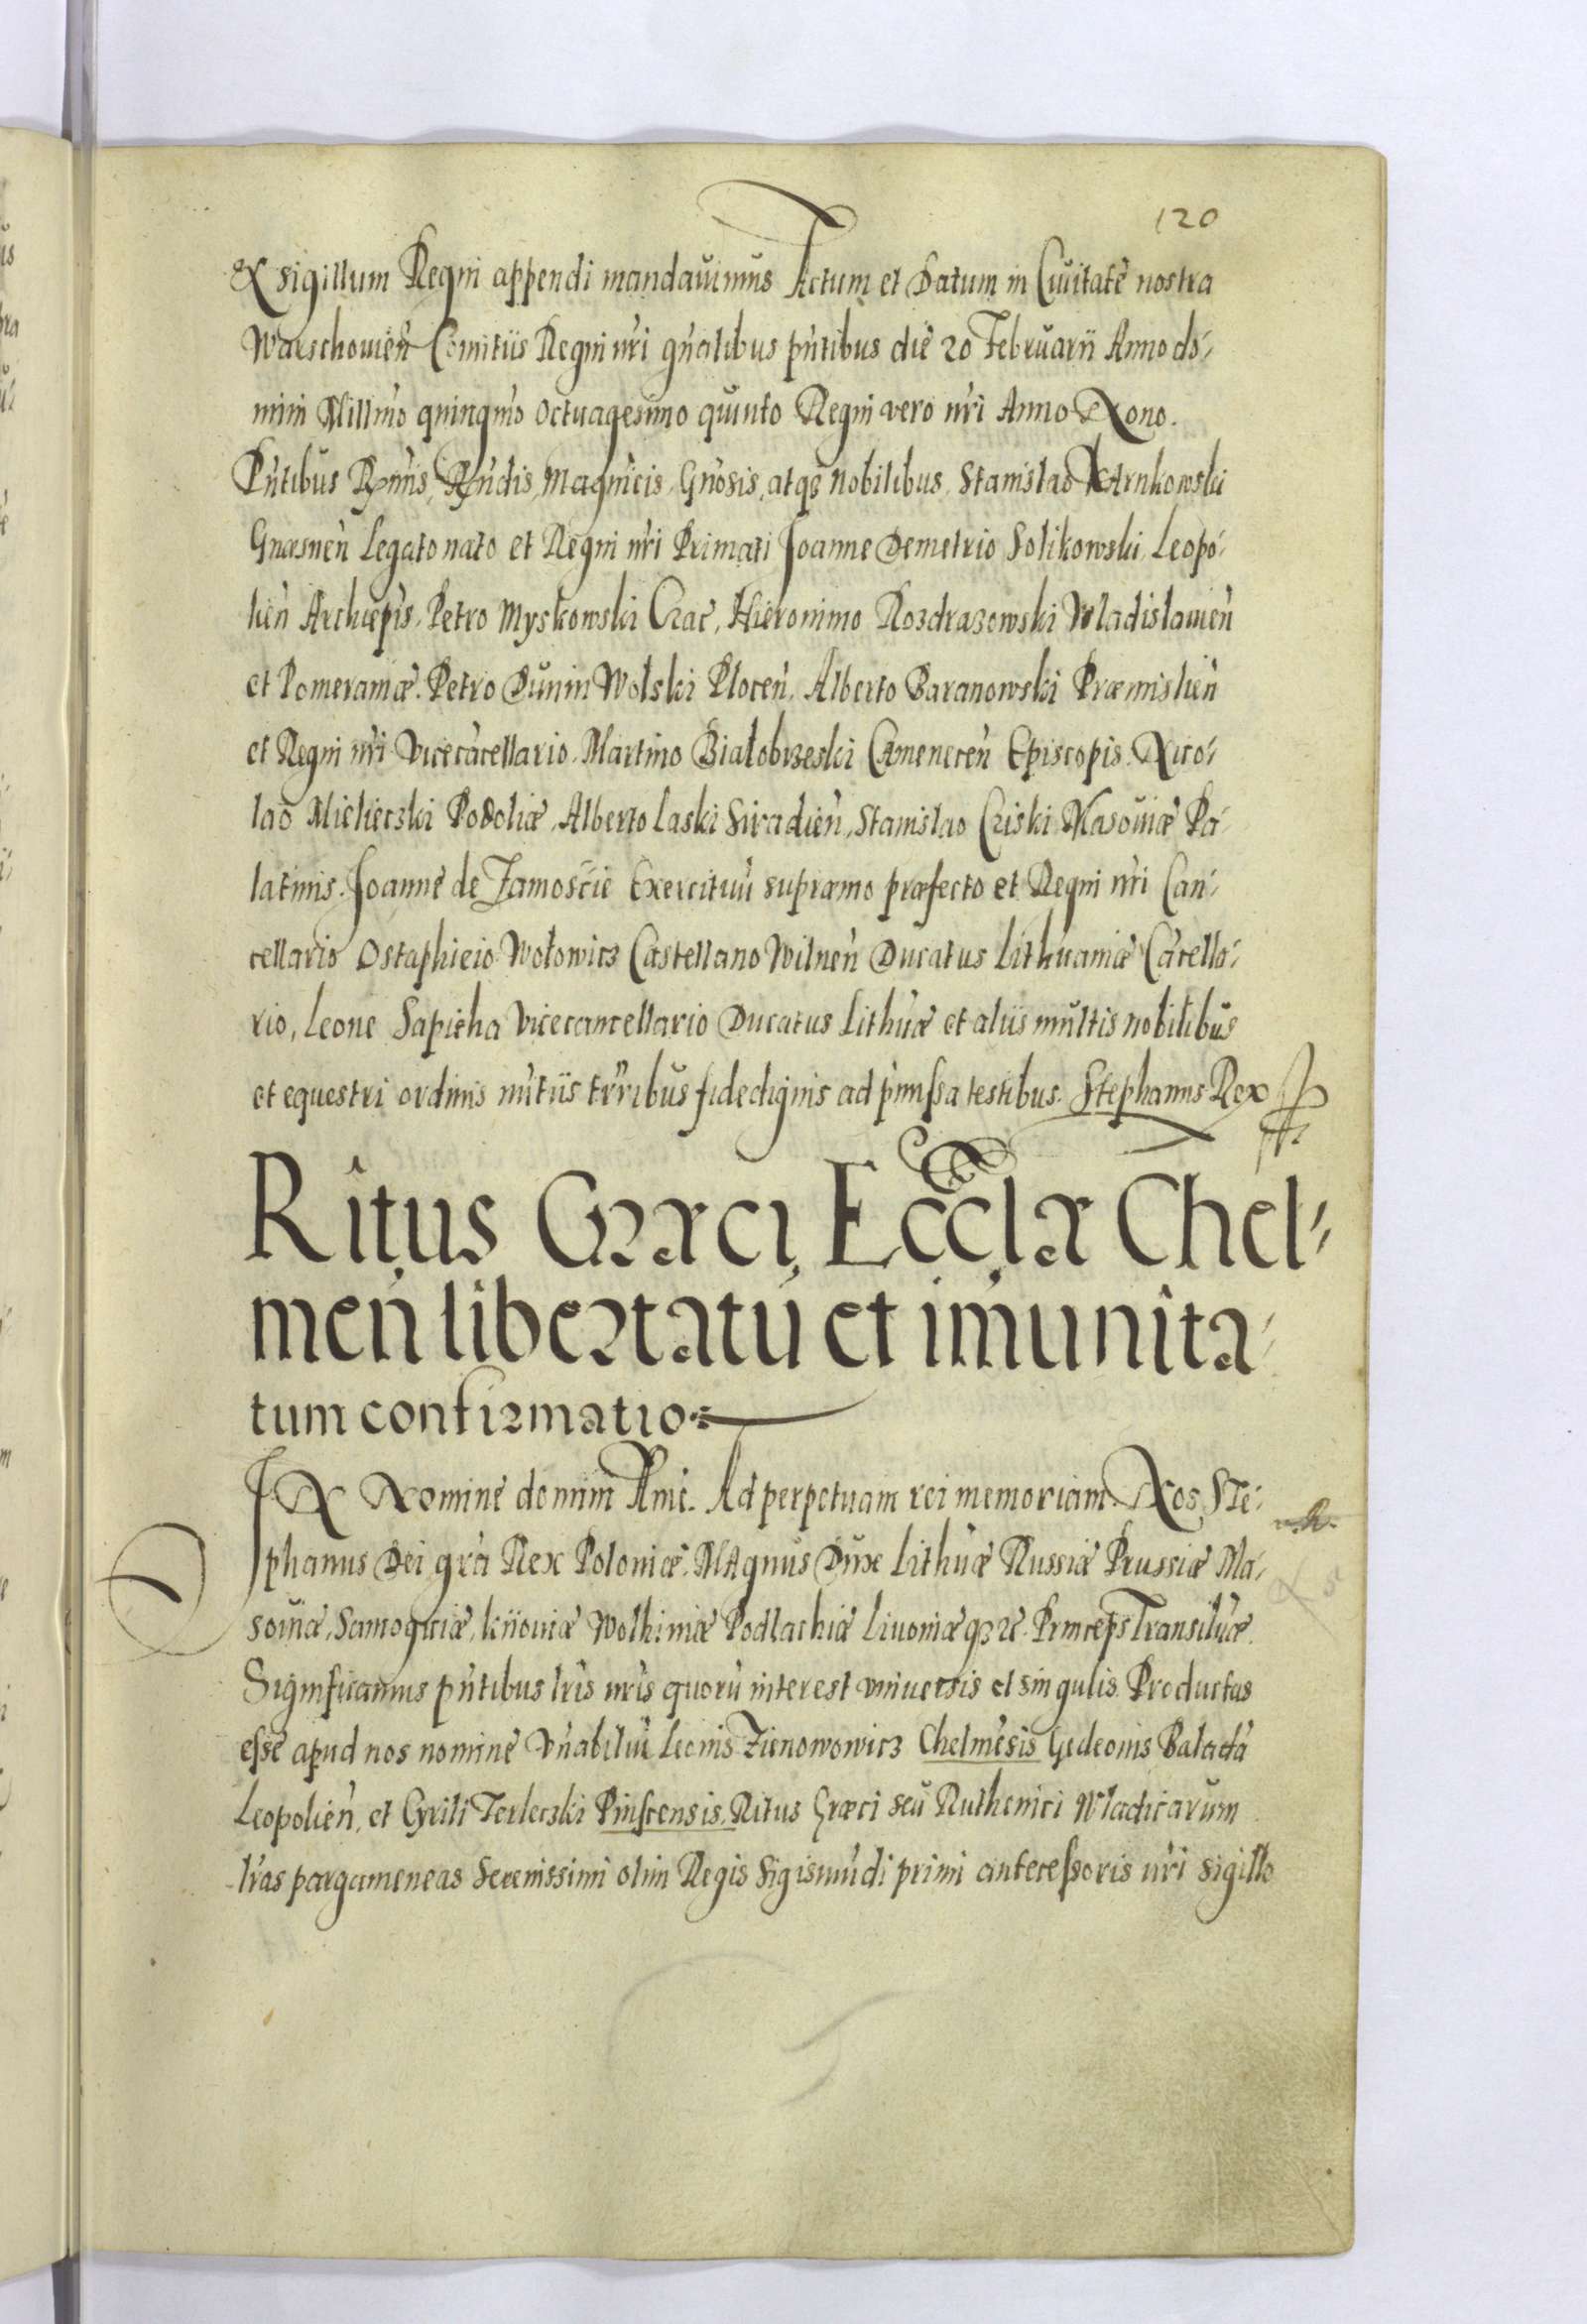 120
et sigillum Regni appendi mandavimus Actum et Datum in Civitate nostra
Warschovień Comitiis Regni nr̃i gn̄alibus pn̄tibus die 20 Februarii Anno do-
mini Millm̃o quingm̃o octuagesimo quinto Regni vero nr̃i Anno Nono.
Pn̄tibus Rm̃is, Rn̄dis, Magn̄icis, Gn̄osis, atq3 nobilibus, Stanislao Karnkowski
Gnæsneń Legato nato et Regni nr̃i Primati Joanne Demetrio Solikowski, Leopo-
lień Archiepis, Petro Myskowski Crac, Hieronimo Rozdrazowski Wladislavień
et Pomeraniæ. Petro Dunin Wolski Ploceń, Alberto Baranowski Præmislień
et Regni nr̃i Vicecācellario. Martino Białobrzeski Cameneceń Episcopis. Nico-
lao Mielieczki Podoliæ, Alberto Laski Siradień, Stanislao Criski Masoviæ Pa-
latinis. Joanne de Zamoscie Exercituū supræmo præfecto et Regni nr̃i Can-
cellario Ostaphieio Wołowicz Castellano Wilneń Ducatus Lithuaniæ Cācella-
rio, Leone Sapieha Vicecancellario Ducatus Lithūæ et aliis multis nobilibus
et equestri ordinis nūtiis trr̃ibus fide dignis ad p̄missa testibus. Stephanus Rex
Ritus Græci, Eccl̃æ Chel-
meń libertatū et im̄unita-
tum confirmatio
IN Nomine domini Ame. Ad perpetuam rei memoriam. Nos Ste-
phanus Dei grã Rex Poloniæ, Magnus Dux Lithūæ Russiæ Prussiæ Ma-
soviæ, Samogitiæ, kiioviæ Wolhiniæ Podlachiæ Livoniæq3 rc. Princeps Transilvæ.
Significamus pn̄tibus lr̃is nr̃is quorū interest universis et singulis. Productas
esse apud nos nomine Vn̄abiliū Leonis Zienowowicz Chelmēsis Gedeonis Balabā
Leopolień, et Cyrili Terleczki Pinscensis, Ritus Græci seu Ruthenici Wladicarum
lr̃as pargameneas Serenissimi olim Regis Sigismūdi primi antecessoris nr̃i sigillo